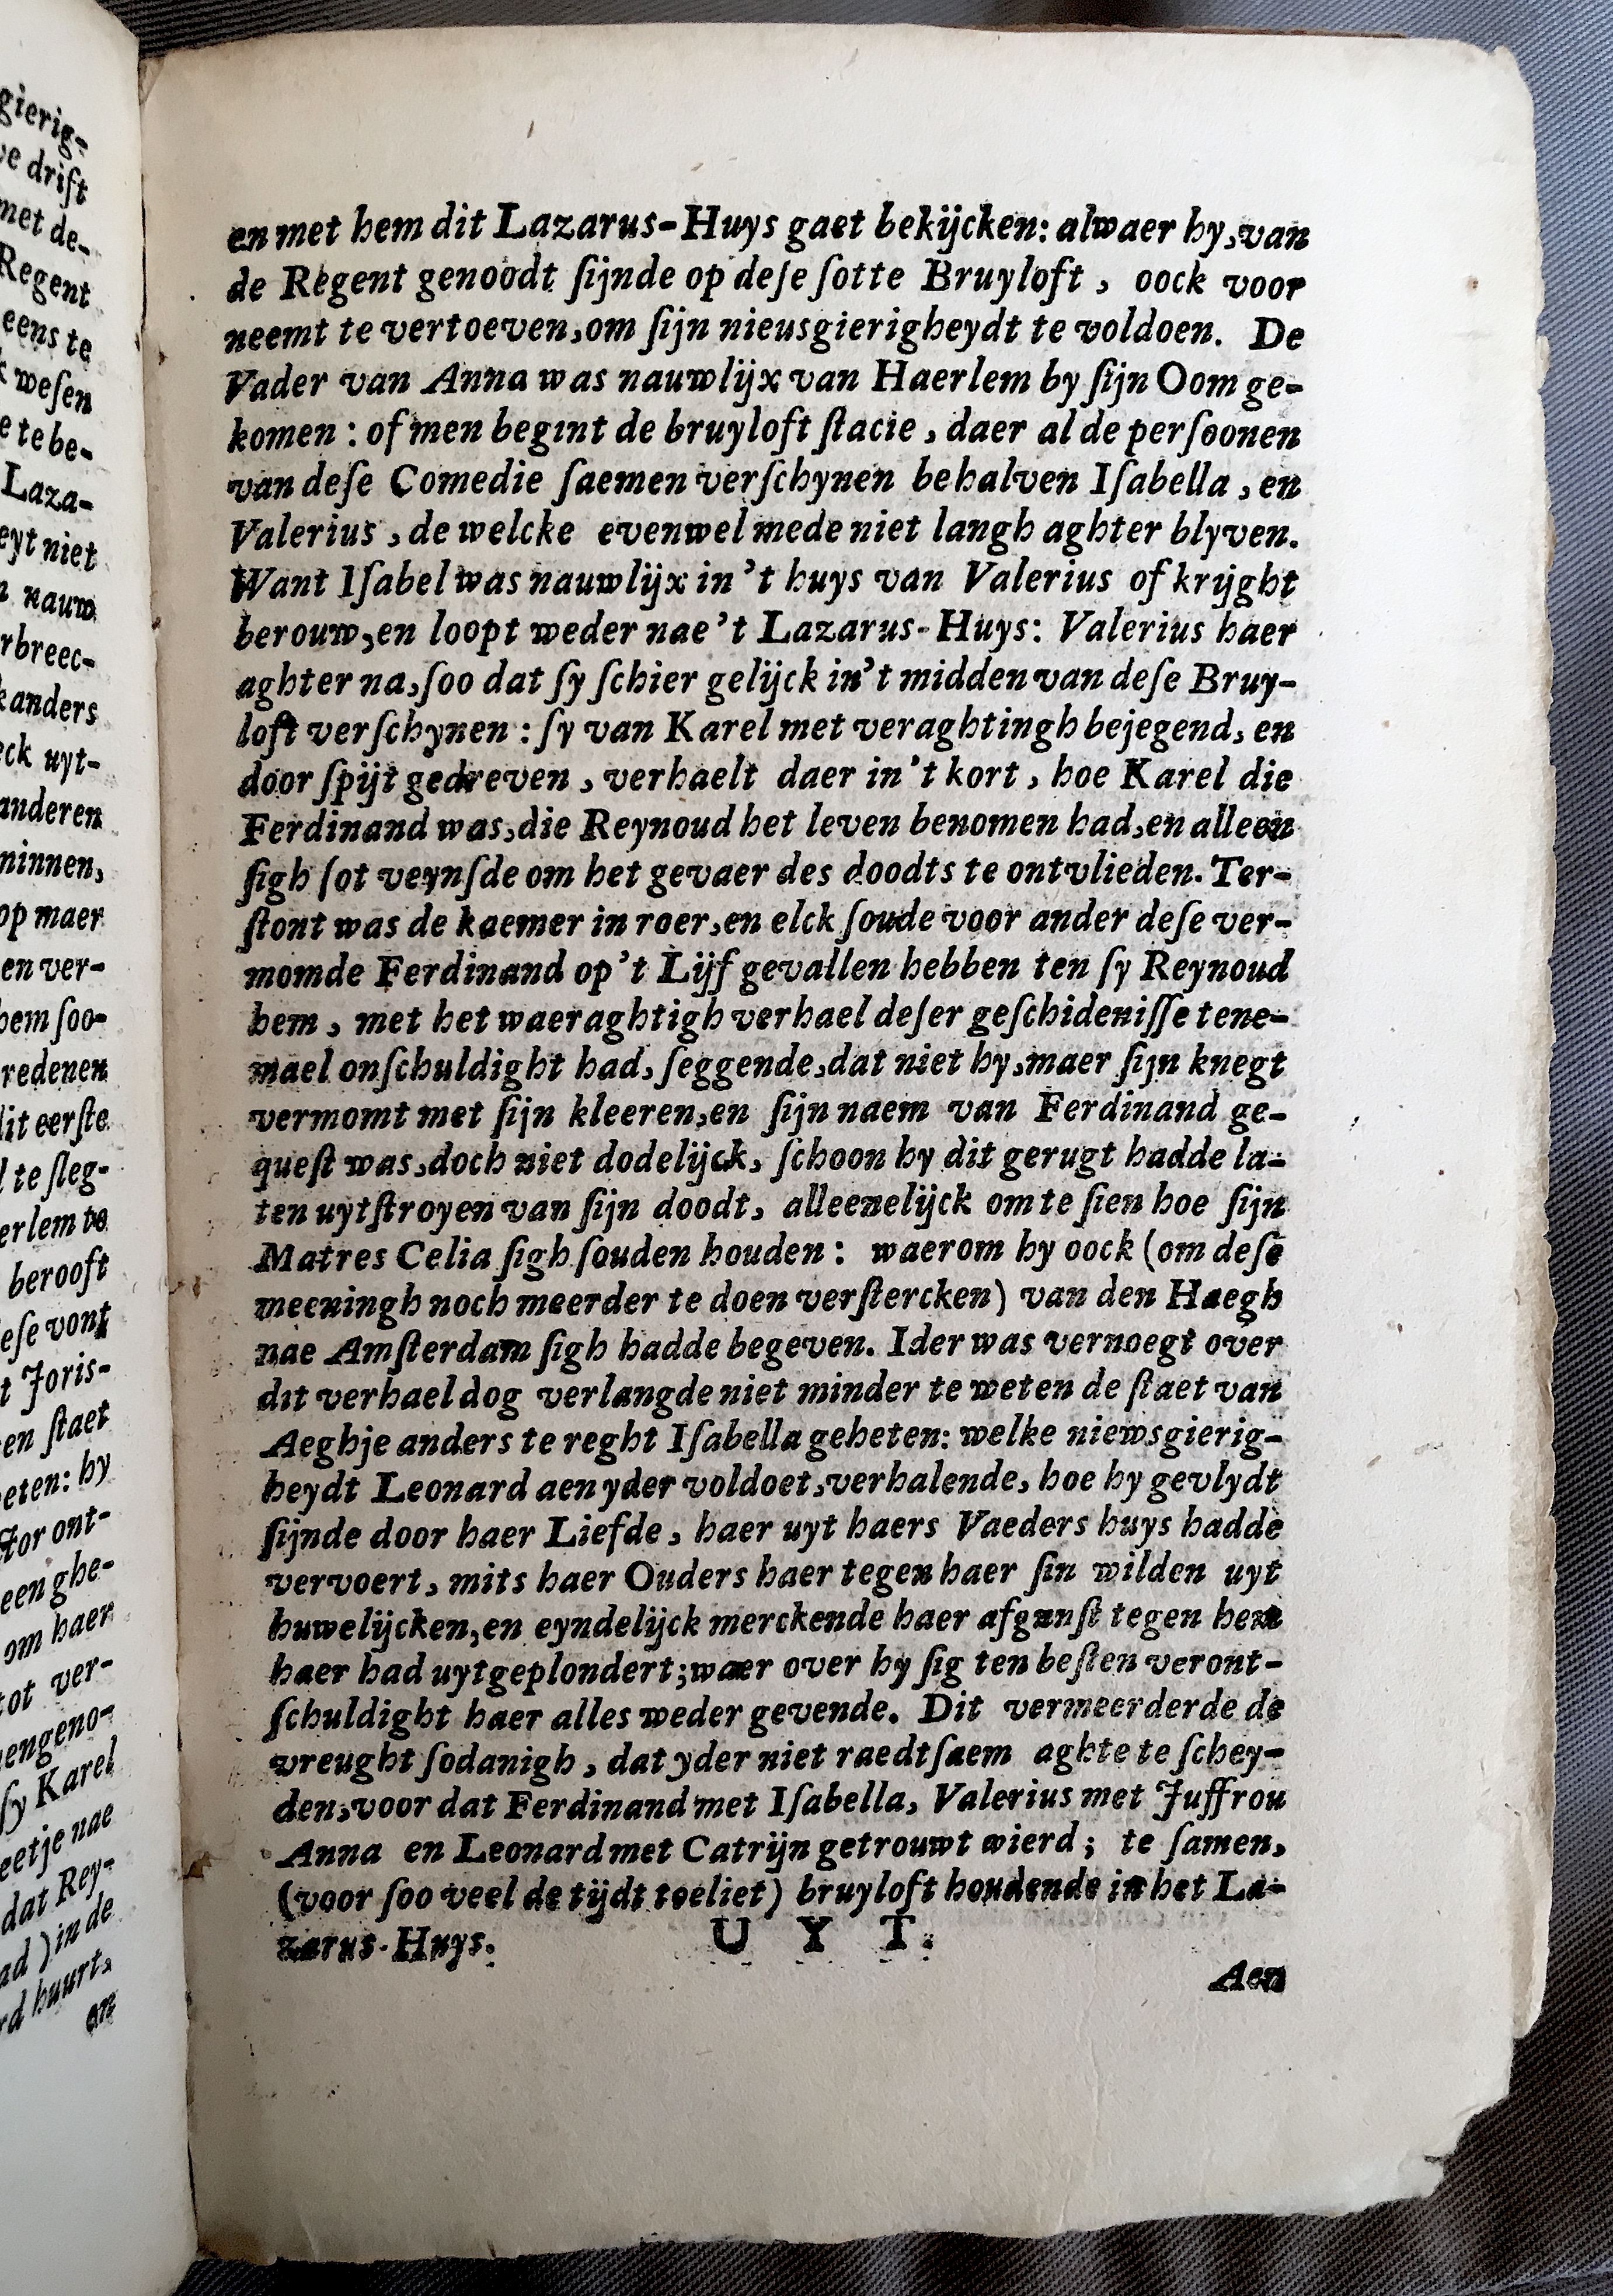 gierig-
ve drift
met de-
Regent
eens te
wesen
e te be-
Laza-
eyt niet
nauw
rbreec-
kanders
ck uyt-
anderen
minnen,
op maer
en ver-
hem soo-
redenen
dit eerste
te sleg-
erlem te
berooft
ese vont
t Joris-
en staet
eten: hy
ctor ont-
een ghe-
om haer
tot ver-
engeno-
sy Karel
eetje nae
dat Rey-
ad ) in de
rd huurt,
en
en met hem dit Lazarus-Huys gaet bekijcken: alwaer hy, van
de Regent genoodt ſijnde op deſe ſotte Bruyloft, oock voor
neemt te vertoeven, om ſijn nieusgierigheydt te voldoen. De
Vader van Anna was nauwlijx van Haerlem by ſijn Oom ge-
komen: of men begint de bruyloft ſtacie, daer al de perſoonen
van deſe Comedie ſaemen verſchynen behalven Iſabella, en
Valerius, de welcke evenwel mede niet langh aghter blyven.
Want Iſabel was nauwlijx in 't huys van Valerius of krijght
berouw, en loopt weder nae 't Lazarus-Huys: Valerius haer
aghter na, ſoo dat ſy ſchier gelijck in 't midden van deſe Bruy-
loft verſchynen: ſy van Karel met veraghtingh bejegend, en
door ſpijt gedreven, verhaelt daer in 't kort, hoe Karel die
Ferdinand was, die Reynoud het leven benomen had, en alleen
ſigh ſot veynſde om het gevaer des doodts te ontvlieden. Ter-
ſtont was de kaemer in roer, en elck ſoude voor ander deſe ver-
momde Ferdinand op 't Lijf gevallen hebben ten ſy Reynoud
hem, met het waeraghtigh verhael deſer geſchideniſſe tene-
mael onſchuldight had, ſeggende, dat niet hy, maer ſijn knegt
vermomt met ſijn kleeren, en ſijn naem van Ferdinand ge-
queſt was, doch niet dodelijck, ſchoon hy dit gerugt hadde la-
ten uytſtroyen van ſijn doodt, alleenelijck om te ſien hoe ſijn
Matres Celia ſigh ſouden houden: waerom hy oock (om deſe
meeningh noch meerder te doen verſtercken) van den Haegh
nae Amſterdam ſigh hadde begeven. Ider was vernoegt over
dit verhael dog verlangde niet minder te weten de ſtaet van
Aeghje anders te reght Iſabella geheten: welke niewsgierig-
heydt Leonard aen yder voldoet, verhalende, hoe hy gevlydt
ſijnde door haer Liefde, haer uyt haers Vaeders huys hadde
vervoert, mits haer Ouders haer tegen haer ſin wilden uyt
huwelijcken, en eyndelijck merckende haer afgunſt tegen hem
haer had uytgeplondert; waer over hy ſig ten beſten veront-
ſchuldight haer alles weder gevende. Dit vermeerderde de
vreught ſodanigh, dat yder niet raedtſaem aghte te ſchey-
den, voor dat Ferdinand met Iſabella, Valerius met Juffrou
Anna en Leonard met Catrijn getrouwt wierd; te ſamen,
(voor ſoo veel de tijdt toeliet) bruyloft houdende in het La-
zarus-Huys. U Y T.
Aen